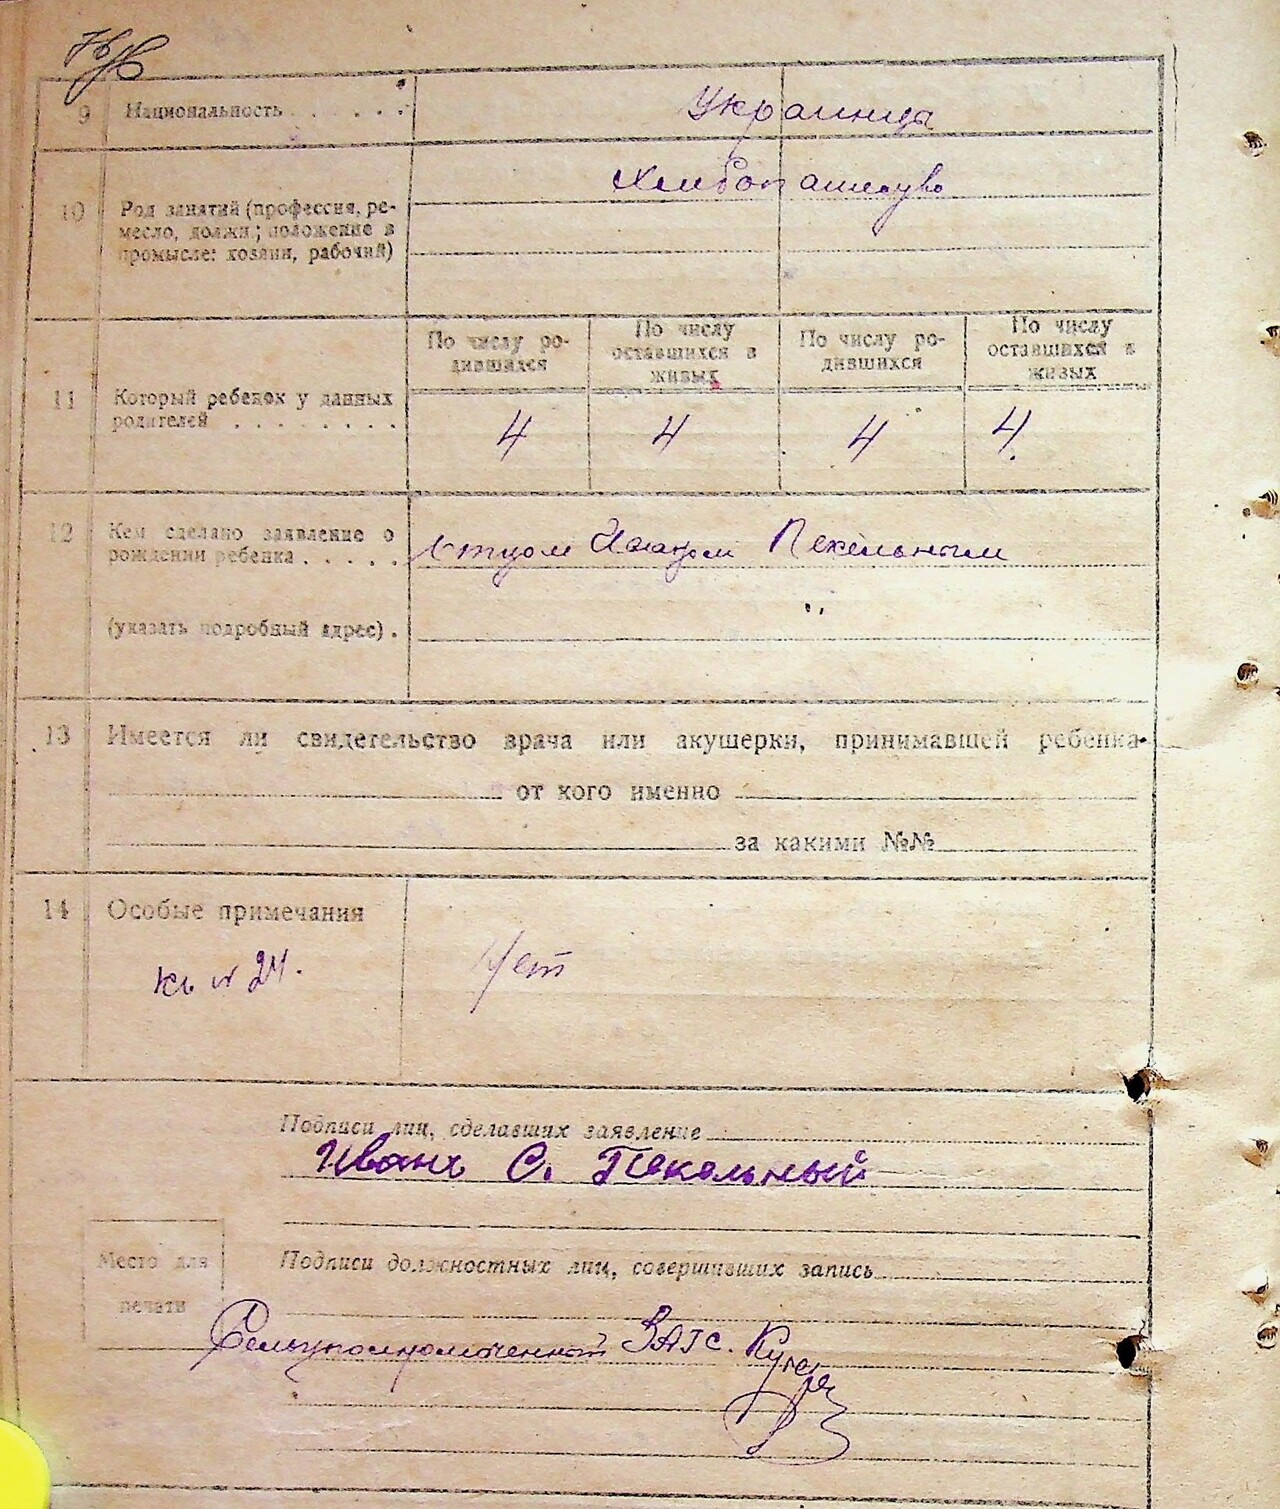 9 Национальность . . . . . . Украинца
Хлебопашеств
10 Род занятий (профессия, ре-
месло, должн; положение в
промысле: хозяин, рабочий)
По числу ро-
дившихся
По числу
оставшихся в
живых
По числу ро-
дившихся
По числу
оставшихся в
живых
11 Который ребенок у данных
родителей . . . . . . . .
4 4 4 4.
12 Кем сделано заявление о
рождении ребенка . . . . . отцом Пекельным
(указать подробный адрес) . "
13 Имеется ли свидетельство врача или акушерки, принимавшей ребенка
от кого именно
за какими №№
14 Особые примечания
к № 24. Нет
Подписи лиц, сделавших заявление
Иванъ С. Пекельный
Место для
печати
Подписи должностных лиц, совершивших запись
Сельуполномоченный ЗАГС.